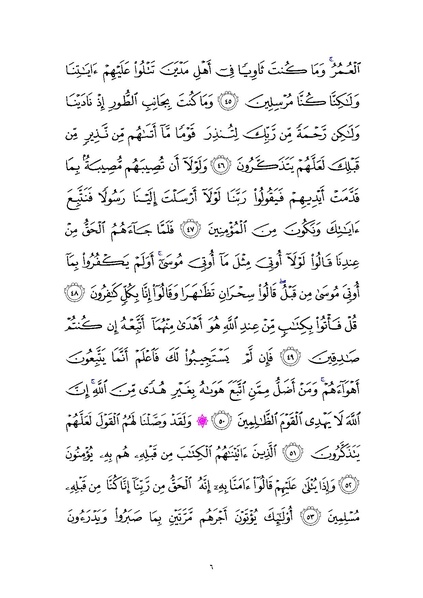 ٱلۡعُمُرُۚ وَمَا كُنتَ ثَاوِيٗا فِيٓ أَهۡلِ مَدۡيَنَ تَتۡلُواْ عَلَيۡهِمۡ ءَايَٰتِنَا
وَلَٰكِنَّا كُنَّا مُرۡسِلِينَ ٤٥ وَمَا كُنتَ بِجَانِبِ ٱلطُّورِ إِذۡ نَادَيۡنَا
وَلَٰكِن رَّحۡمَةٗ مِّن رَّبِّكَ لِتُنذِرَ قَوۡمٗا مَّآ أَتَىٰهُم مِّن نَّذِيرٖ مِّن
قَبۡلِكَ لَعَلَّهُمۡ يَتَذَكَّرُونَ ٤٦ وَلَوۡلَآ أَن تُصِيبَهُم مُّصِيبَةُۢ بِمَا
قَدَّمَتۡ أَيۡدِيهِمۡ فَيَقُولُواْ رَبَّنَا لَوۡلَآ أَرۡسَلۡتَ إِلَيۡنَا رَسُولٗا فَنَتَّبِعَ
ءَايَٰتِكَ وَنَكُونَ مِنَ ٱلۡمُؤۡمِنِينَ ٤٧ فَلَمَّا جَآءَهُمُ ٱلۡحَقُّ مِنۡ
عِندِنَا قَالُواْ لَوۡلَآ أُوتِيَ مِثۡلَ مَآ أُوتِيَ مُوسَىٰٓۚ أَوَلَمۡ يَكۡفُرُواْ بِمَآ
أُوتِيَ مُوسَىٰ مِن قَبۡلُۖ قَالُواْ سِحۡرَانِ تَظَٰهَرَا وَقَالُوٓاْ إِنَّا بِكُلّٖ كَٰفِرُونَ ٤٨
قُلۡ فَأۡتُواْ بِكِتَٰبٖ مِّنۡ عِندِ ٱللَّهِ هُوَ أَهۡدَىٰ مِنۡهُمَآ أَتَّبِعۡهُ إِن كُنتُمۡ
صَٰدِقِينَ ٤٩ فَإِن لَّمۡ يَسۡتَجِيبُواْ لَكَ فَٱعۡلَمۡ أَنَّمَا يَتَّبِعُونَ
أَهۡوَآءَهُمۡۚ وَمَنۡ أَضَلُّ مِمَّنِ ٱتَّبَعَ هَوَىٰهُ بِغَيۡرِ هُدٗى مِّنَ ٱللَّهِۚ إِنَّ
ٱللَّهَ لَا يَهۡدِي ٱلۡقَوۡمَ ٱلظَّٰلِمِينَ ٥٠ ۞ وَلَقَدۡ وَصَّلۡنَا لَهُمُ ٱلۡقَوۡلَ لَعَلَّهُمۡ
يَتَذَكَّرُونَ ٥١ ٱلَّذِينَ ءَاتَيۡنَٰهُمُ ٱلۡكِتَٰبَ مِن قَبۡلِهِۦ هُم بِهِۦ يُؤۡمِنُونَ
٥٢ وَإِذَا يُتۡلَىٰ عَلَيۡهِمۡ قَالُوٓاْ ءَامَنَّا بِهِۦٓ إِنَّهُ ٱلۡحَقُّ مِن رَّبِّنَآ إِنَّا كُنَّا مِن قَبۡلِهِۦ
مُسۡلِمِينَ ٥٣ أُوْلَٰٓئِكَ يُؤۡتَوۡنَ أَجۡرَهُم مَّرَّتَيۡنِ بِمَا صَبَرُواْ وَيَدۡرَءُونَ
٦